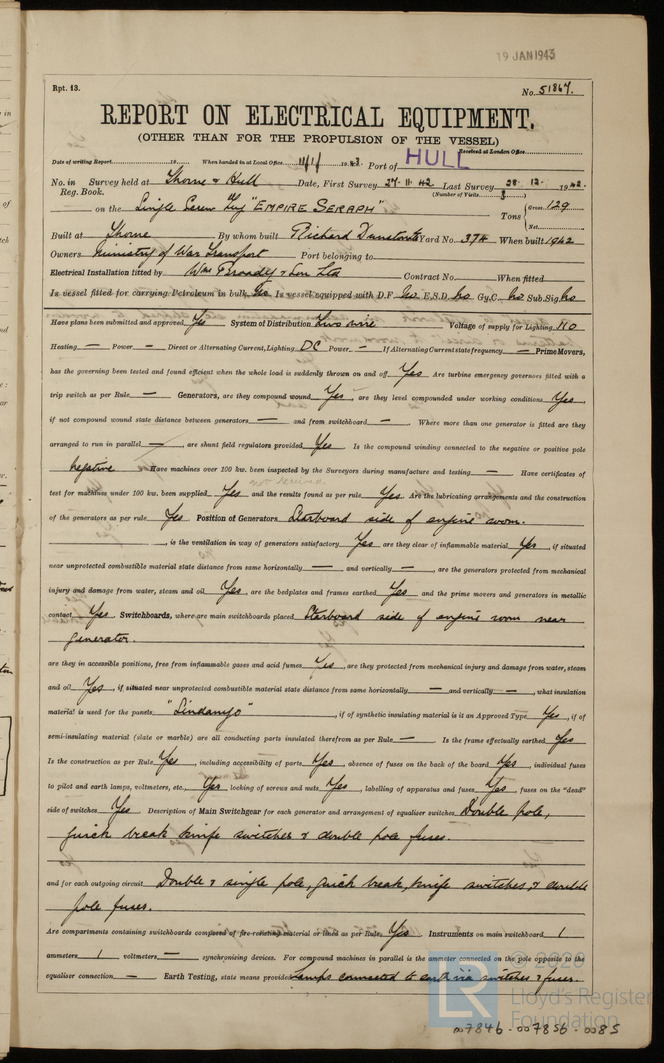 19 JAN 1943
Rpt. 13.
No. 51867.
REPORT ON ELECTRICAL EQUIPMENT.
(OTHER THAN FOR THE PROPULSION OF THE VESSEL)
Received at London Office
Date of writing Report 19 When handed in at Local Office 11/1/1943 Port of HULL
No. in Reg. Book. Survey held at Thorne & Hull Date, First Survey 27.11.42 Last Survey 28.12.1942
(Number of Visits)
on the Single Screw Tug "EMPIRE SERAPH" Tons Gross 129 Net
Built at Thorne By whom built Richard Dunston Ltd Yard No. 374 When built 1942
Owners Ministry of War Transport Port belonging to
Electrical Installation fitted by Wm Broady & Son Ltd Contract No. When fitted
Is vessel fitted for carrying Petroleum in bulk No Is vessel equipped with D.F. No E.S.D. No Gy.C. No Sub.Sig. No
Have plans been submitted and approved Yes System of Distribution Two wire Voltage of supply for Lighting 110
Heating — Power — Direct or Alternating Current, Lighting DC Power — If Alternating Current state frequency — Prime Movers,
has the governing been tested and found efficient when the whole load is suddenly thrown on and off Yes Are turbine emergency governors fitted with a
trip switch as per Rule — Generators, are they compound wound Yes, are they level compounded under working conditions Yes,
if not compound wound state distance between generators — and from switchboard — Where more than one generator is fitted are they
arranged to run in parallel —, are shunt field regulators provided Yes Is the compound winding connected to the negative or positive pole
Negative Have machines over 100 kw. been inspected by the Surveyors during manufacture and testing — Have certificates of
test for machines under 100 kw. been supplied Yes and the results found as per rule Yes Are the lubricating arrangements and the construction
of the generators as per rule Yes Position of Generators Starboard side of engine room.
, is the ventilation in way of generators satisfactory Yes are they clear of inflammable material Yes, if situated
near unprotected combustible material state distance from same horizontally — and vertically —, are the generators protected from mechanical
injury and damage from water, steam and oil Yes, are the bedplates and frames earthed Yes and the prime movers and generators in metallic
contact Yes Switchboards, where are main switchboards placed Starboard side of engine room near
generator.
are they in accessible positions, free from inflammable gases and acid fumes Yes, are they protected from mechanical injury and damage from water, steam
and oil Yes, if situated near unprotected combustible material state distance from same horizontally — and vertically —, what insulation
material is used for the panels "Sindanyo", if of synthetic insulating material is it an Approved Type Yes, if of
semi-insulating material (slate or marble) are all conducting parts insulated therefrom as per Rule — Is the frame effectually earthed Yes
Is the construction as per Rule Yes, including accessibility of parts Yes, absence of fuses on the back of the board Yes, individual fuses
to pilot and earth lamps, voltmeters, etc., Yes locking of screws and nuts Yes, labelling of apparatus and fuses Yes, fuses on the "dead"
side of switches Yes Description of Main Switchgear for each generator and arrangement of equaliser switches Double pole,
quick break knife switches & double pole fuses.
and for each outgoing circuit Double & single pole, quick break, knife switches, & double
pole fuses.
Are compartments containing switchboards composed of fire-resisting material or lined as per Rule Yes Instruments on main switchboard 1
ammeters 1 voltmeters — synchronising devices. For compound machines in parallel is the ammeter connected on the pole opposite to the
equaliser connection — Earth Testing, state means provided Lamps connected to earth via switches & fuses.
© 2020
LR
Lloyd's Register
Foundation
007846-007856-0085